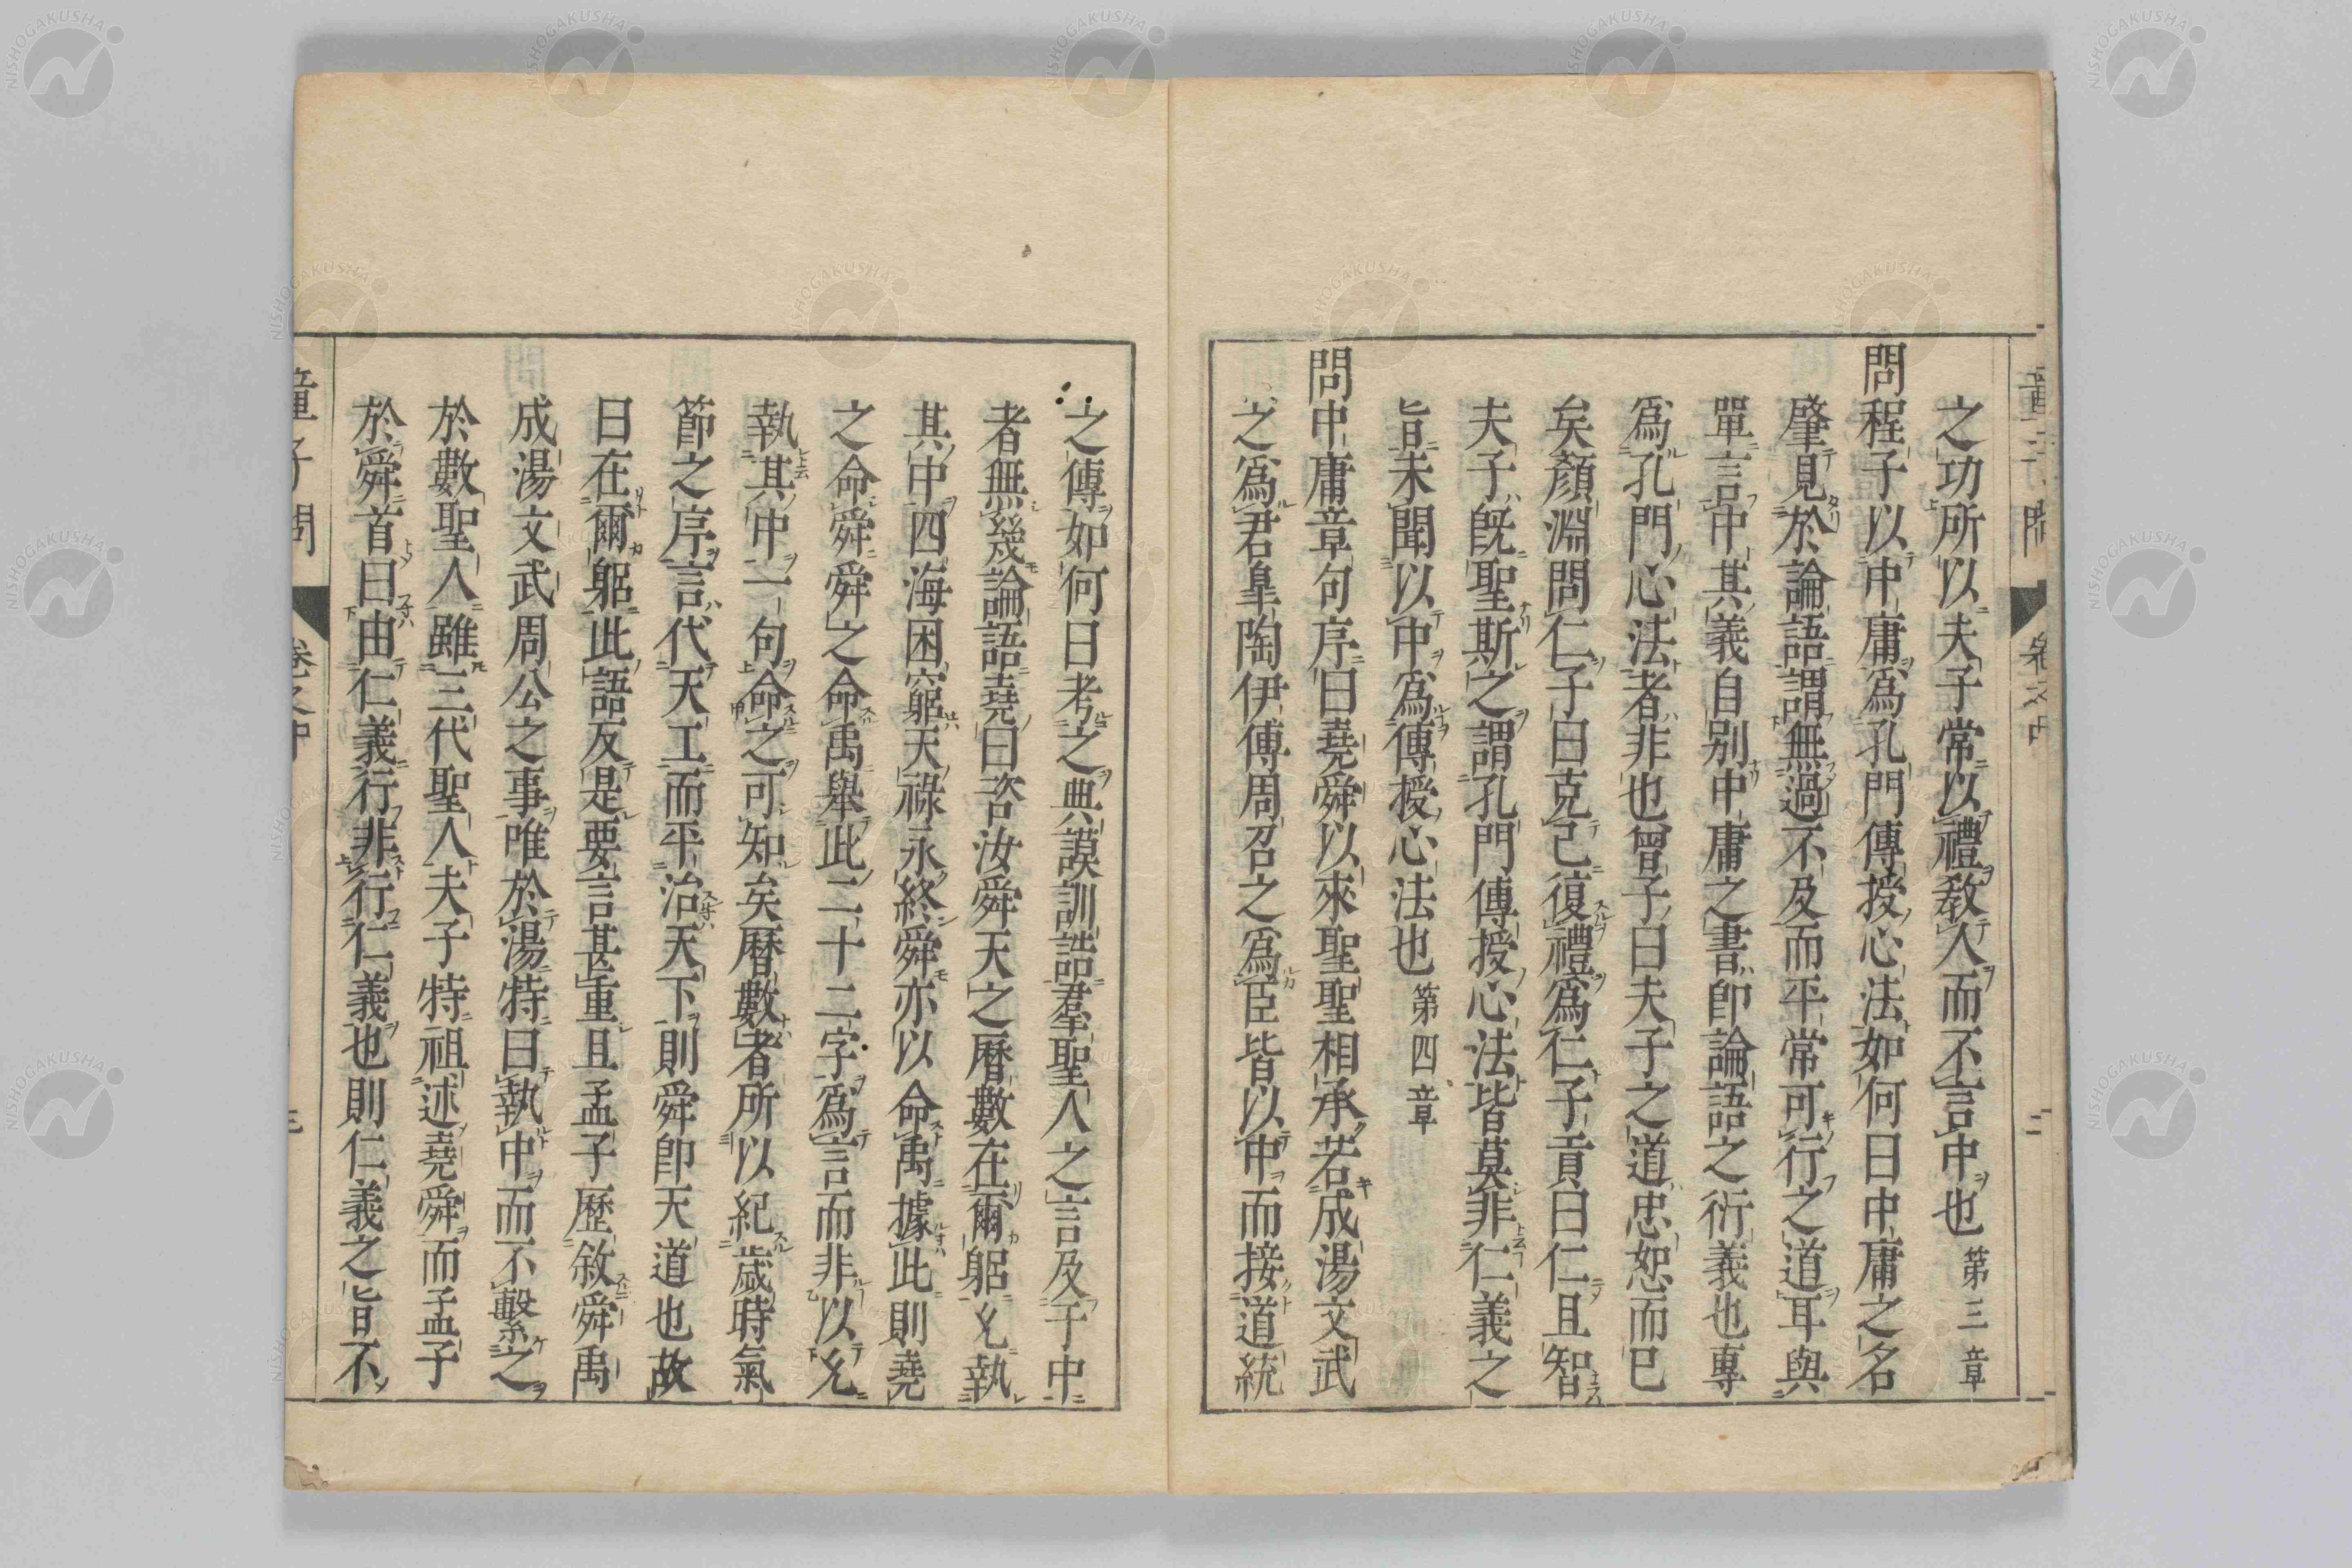 之功所以夫子常以禮敎人而不言中也 第三章
問程子以中庸爲孔門傳授心法如何曰中庸之名
肇見於論語謂無過不及而平常可行之道耳與
單言中其義自別中庸之書卽論語之衍義也專
爲孔門心法者非也曾子曰夫子之道忠恕而已
矣顏淵問仁子曰克己復禮爲仁子貢曰仁且智
夫子旣聖斯之謂孔門傳授心法皆莫非仁義之
旨未聞以中爲傳授心法也 第四章
問中庸章句序曰堯舜以來聖聖相承若成湯文武
之爲君皐陶伊傅周召之爲臣皆以中而接道統
之傳如何曰考之典謨訓誥羣聖人之言及于中
者無幾論語堯曰咨汝舜天之曆數在爾躬允執
其中四海困窮天祿永終舜亦以命禹據此則堯
之命舜舜之命禹舉此二十二字爲言而非以允
執其中一句命之可知矣曆數者所以紀歲時氣
節之序言代天工而平治天下則舜卽天道也故
曰在爾躬此語反是要言甚重且孟子歷敘舜禹
成湯文武周公之事唯於湯特曰執中而不繫之
於數聖人雖三代聖人夫子特祖述堯舜而孟子
於舜首曰由仁義行非行仁義也則仁義之旨不
童子問 卷之中 三